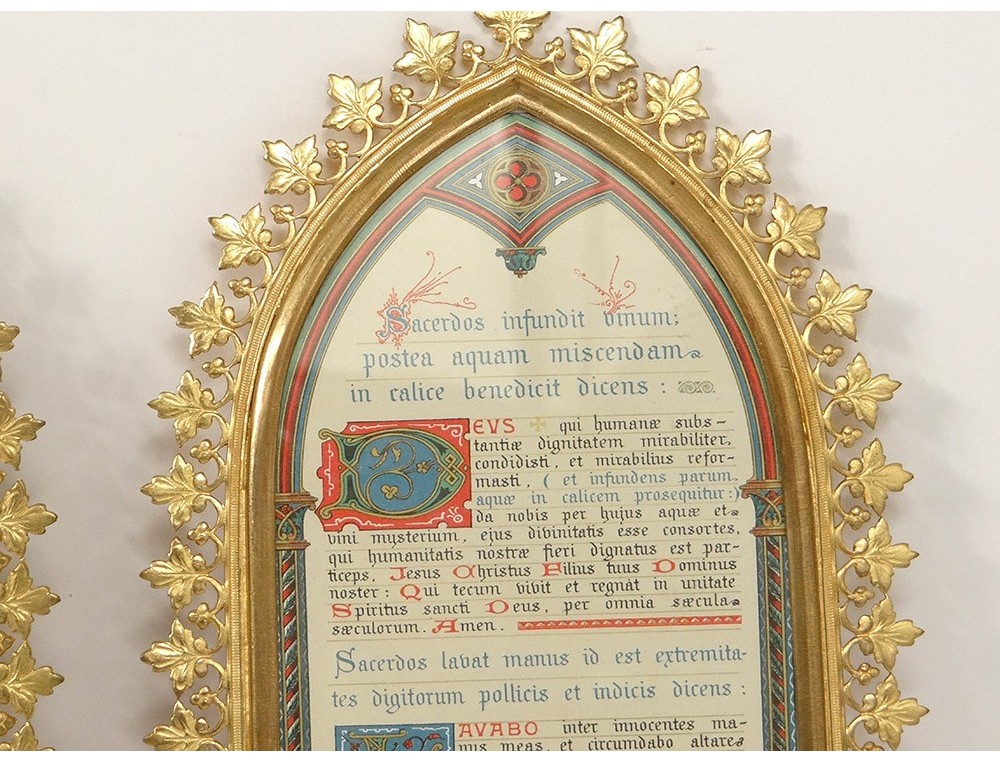 Sacerdos infundit vinum;
postea aquam miscendam
in calice benedicit dicens :
DEVS ✠ qui humanæ subs-
tantiæ dignitatem mirabiliter,
condidisti, et mirabilius refor-
masti, ( et infundens parum
aquæ in calicem prosequitur:)
da nobis per hujus aquæ et
vini mysterium, ejus divinitatis esse consortes,
qui humanitatis nostræ fieri dignatus est par-
ticeps, Jesus Christus Filius tuus Dominus
noster : Qui tecum vivit et regnat in unitate
Spiritus sancti Deus, per omnia sæcula
sæculorum. Amen.
Sacerdos lavat manus id est extremita-
tes digitorum pollicis et indicis dicens :
LAVABO inter innocentes ma-
nus meas, et circumdabo altare